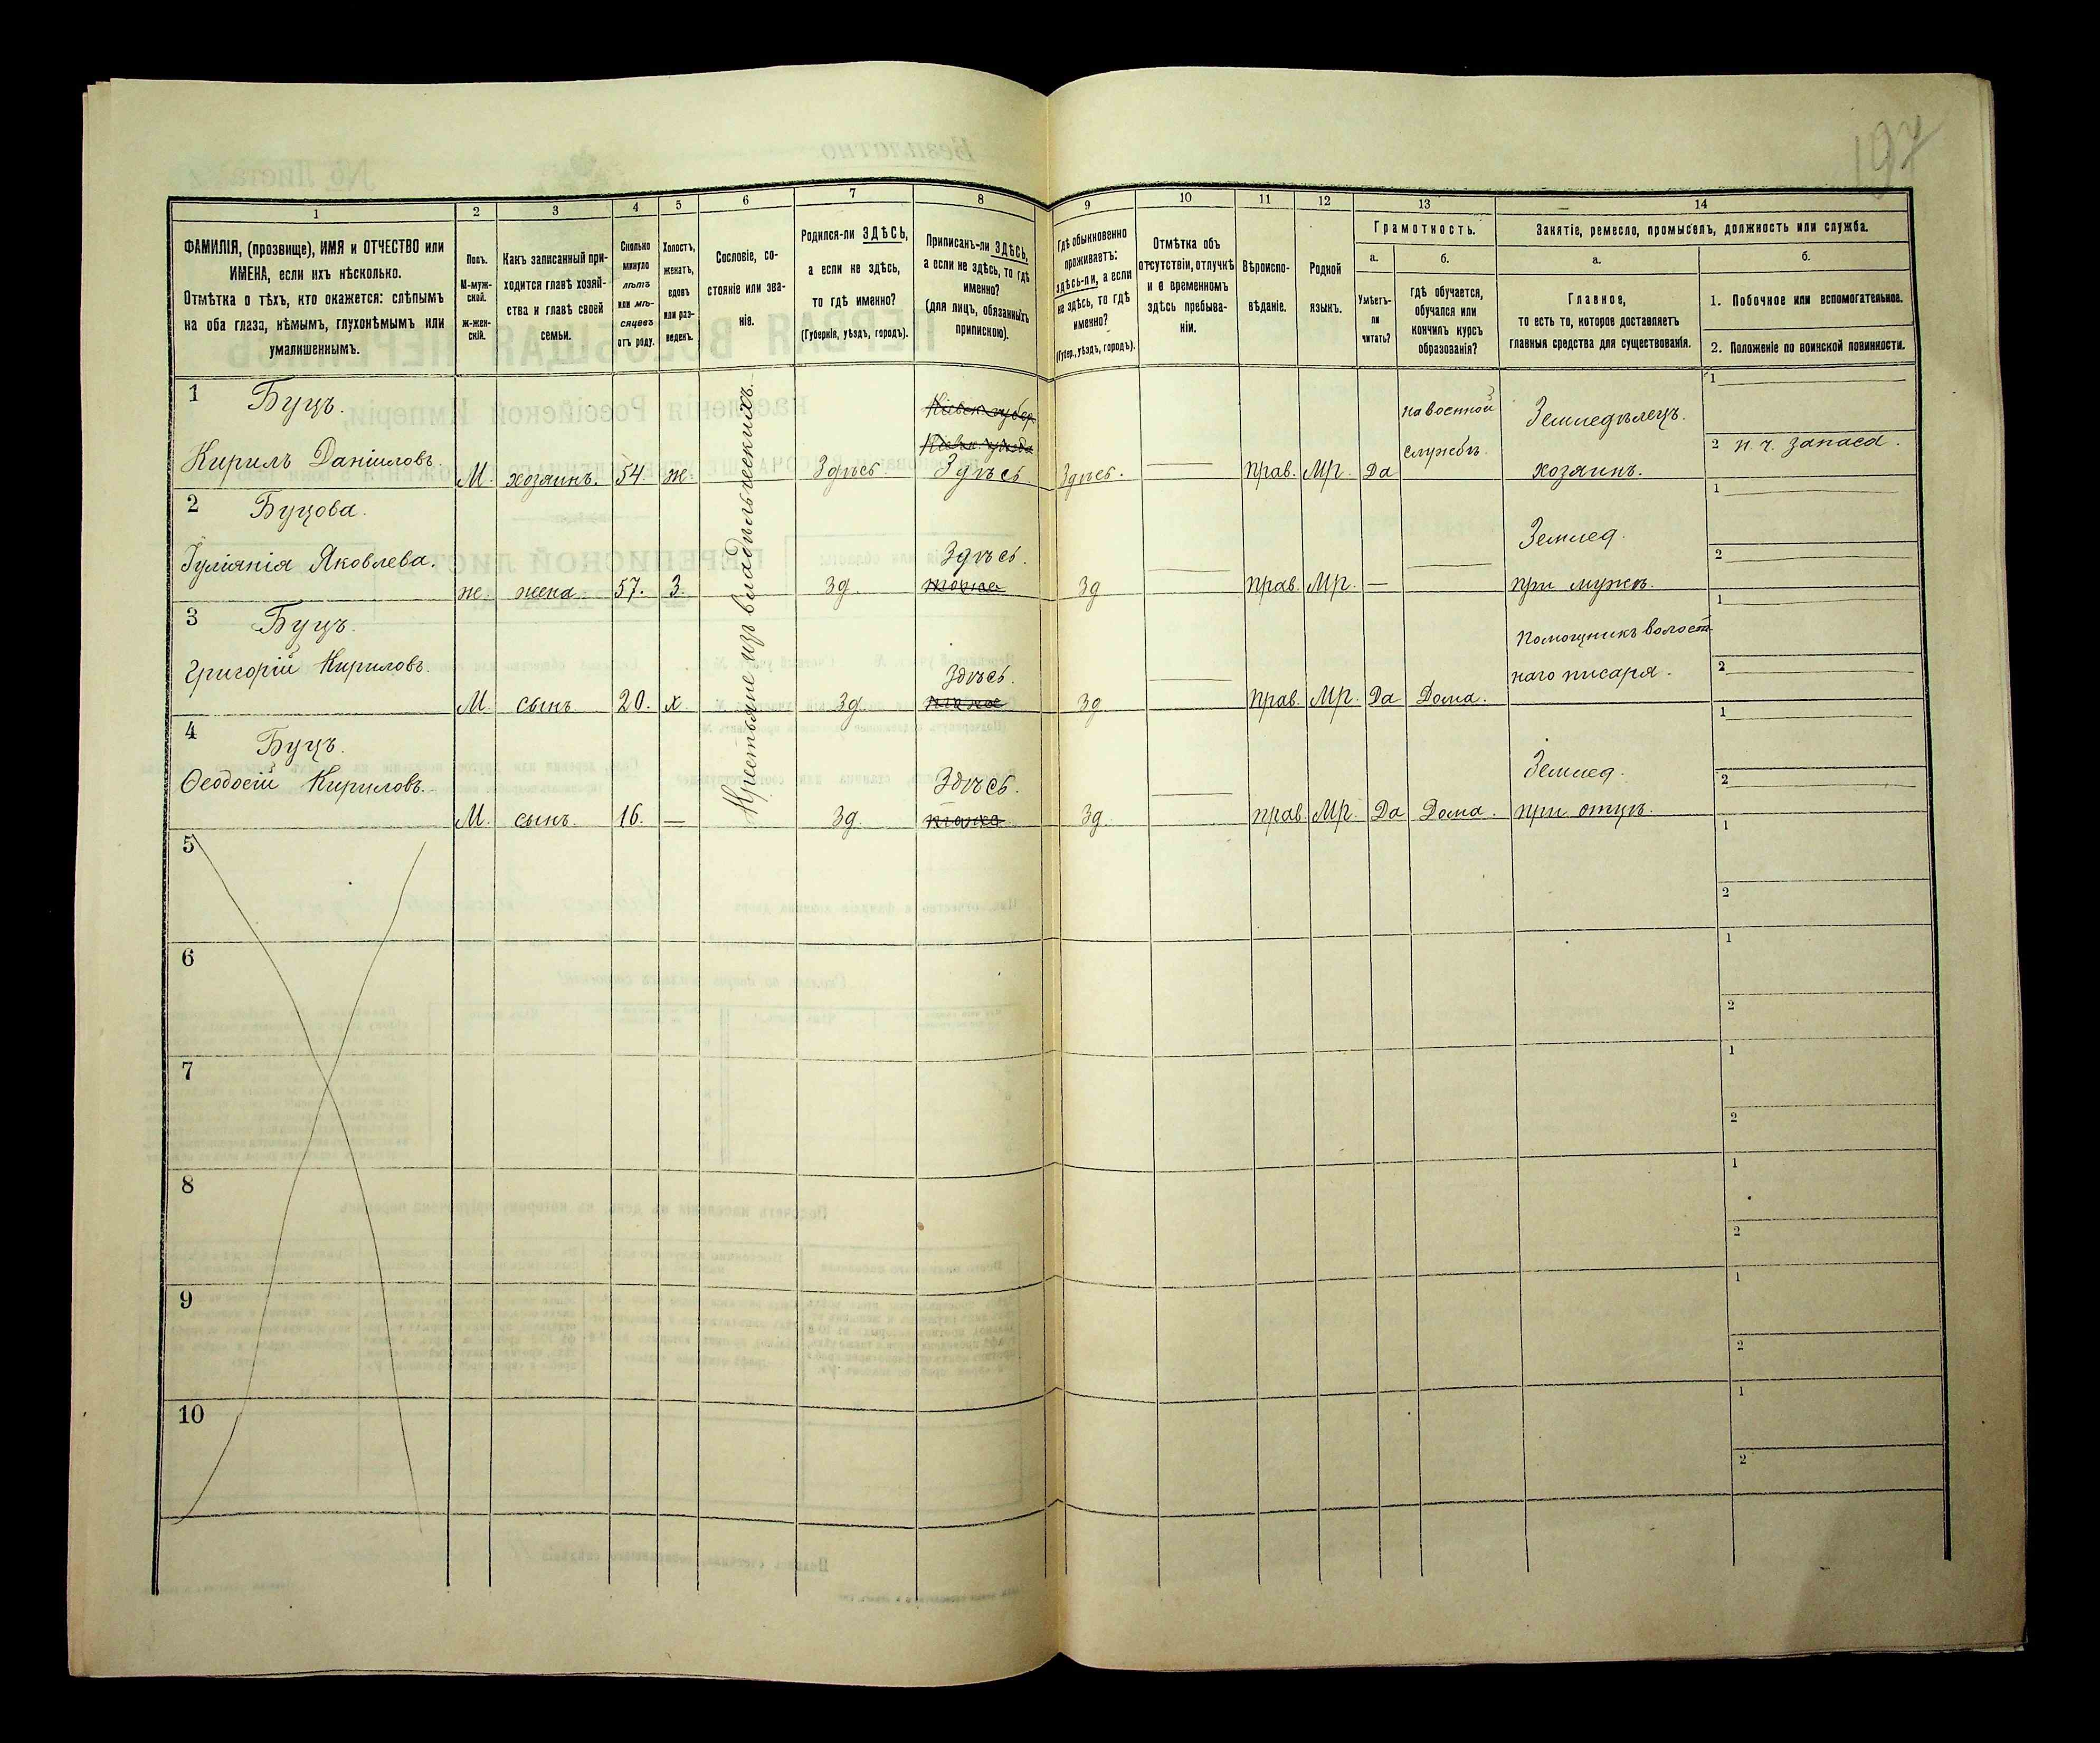 197
1
2
3
4
5
6
7
8
9
10
11
12
13
14
ФАМИЛІЯ, (прозвище), ИМЯ и ОТЧЕСТВО или
ИМЕНА, если ихъ нѣсколько.
Отмѣтка о тѣхъ, кто окажется: слѣпымъ
на оба глаза, нѣмымъ, глухонѣмымъ или
умалишеннымъ.
Полъ.
М-муж-
ской.
ж-жен-
скій.
Какъ записанный при-
ходится главѣ хозяй-
ства и главѣ своей
семьи.
Сколько
минуло
лѣтъ
или мѣ-
сяцевъ
отъ роду.
Холостъ,
женатъ,
вдовъ
или раз-
веденъ.
Сословіе, со-
стояніе или зва-
ніе.
Родился-ли ЗДѢСЬ,
а если не здѣсь,
то гдѣ именно?
(Губернія, уѣздъ, городъ).
Приписанъ-ли ЗДѢСЬ,
а если не здѣсь, то гдѣ
именно?
(для лицъ, обязанныхъ
припискою).
Гдѣ обыкновенно
проживаетъ:
здѣсь-ли, а если
не здѣсь, то гдѣ
именно?
(Губер., уѣздъ, городъ).
Отмѣтка объ
отсутствіи, отлучкѣ
и о временномъ
здѣсь пребыва-
ніи.
Вѣроиспо-
вѣданіе.
Родной
языкъ.
Грамотность.
а.
Умѣетъ-
ли
читать?
б.
гдѣ обучается,
обучался или
кончилъ курсъ
образованія?
Занятіе, ремесло, промыселъ, должность или служба.
а.
Главное,
то есть то, которое доставляетъ
главныя средства для существованія.
б.
1. Побочное или вспомогательное.
2. Положеніе по воинской повинности.
1 Буцъ.
Кирилъ Даніиловъ.
М. хозяинъ. 54. ж.
Крестьяне изъ владѣльческихъ.
Здѣсь.
Кіевск. губер.
Кіевск. уѣзда
Здѣсь.
Здѣсь. — прав. Мр. Да
на военной
службѣ.
Земледѣлецъ.
хозяинъ.
1 —
2 н. ч. запаса.
2 Буцова.
Іуліанія Яковлева.
ж. жена. 57. З. Зд.
Здѣсь.
тоже
Зд — прав. Мр. — —
Землед.
при мужѣ.
1 —
2 —
3 Буцъ.
Григорій Кириловъ.
М. сынъ. 20. х. Зд.
Здѣсь.
Зд — прав. Мр. Да Дома.
Помощникъ волост-
наго писаря.
1 —
2 —
4 Буцъ.
Ѳеодосій Кириловъ.
М. сынъ. 16. — Зд.
Здѣсь.
Зд. — прав. Мр. Да Дома.
Землед.
при отцѣ.
1 —
2 —
5
1
2
6
1
2
7
1
2
8
1
2
9
1
2
10
1
2